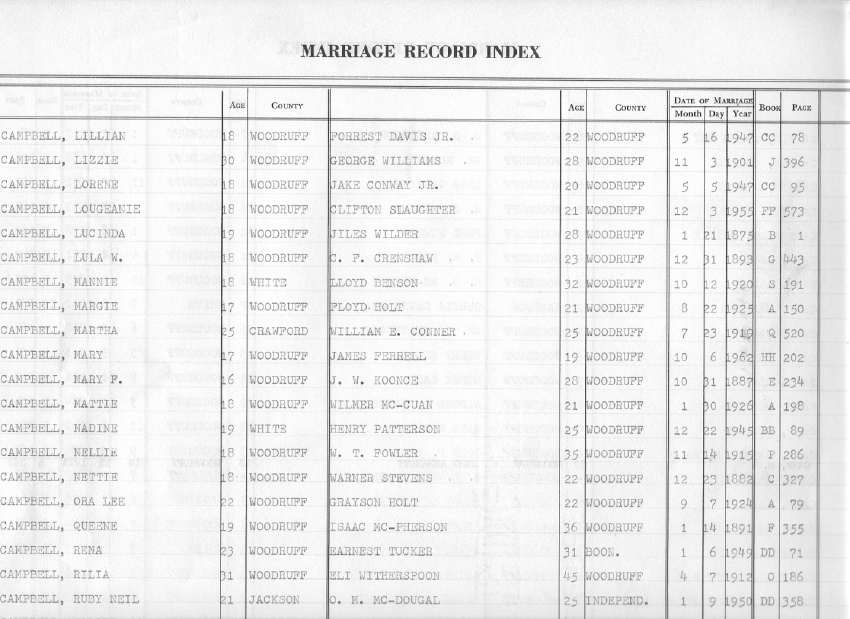 MARRIAGE RECORD INDEX
AGE COUNTY AGE COUNTY DATE OF MARRIAGE BOOK PAGE
Month Day Year
CAMPBELL, LILLIAN 18 WOODRUFF FORREST DAVIS JR. 22 WOODRUFF 5 16 1947 CC 78
CAMPBELL, LIZZIE 30 WOODRUFF GEORGE WILLIAMS 28 WOODRUFF 11 3 1901 J 396
CAMPBELL, LORENE 18 WOODRUFF JAKE CONWAY JR. 20 WOODRUFF 5 5 1947 CC 95
CAMPBELL, LOUGEANIE 18 WOODRUFF CLIFTON SLAUGHTER 21 WOODRUFF 12 3 1955 FF 573
CAMPBELL, LUCINDA 19 WOODRUFF JILES WILDER 28 WOODRUFF 1 21 1875 B 1
CAMPBELL, LULA W. 18 WOODRUFF C. F. CRENSHAW 23 WOODRUFF 12 31 1893 G 443
CAMPBELL, MANNIE 18 WHITE LLOYD BENSON 32 WOODRUFF 10 12 1920 S 191
CAMPBELL, MARGIE 17 WOODRUFF FLOYD HOLT 21 WOODRUFF 8 22 1925 A 150
CAMPBELL, MARTHA 25 CRAWFORD WILLIAM E. CONNER 25 WOODRUFF 7 23 1919 Q 520
CAMPBELL, MARY 17 WOODRUFF JAMES FERRELL 19 WOODRUFF 10 6 1962 HH 202
CAMPBELL, MARY F. 16 WOODRUFF J. W. KOONCE 28 WOODRUFF 10 31 1887 E 234
CAMPBELL, MATTIE 18 WOODRUFF WILMER MC-CUAN 21 WOODRUFF 1 30 1926 A 198
CAMPBELL, NADINE 19 WHITE HENRY PATTERSON 25 WOODRUFF 12 22 1945 BB 89
CAMPBELL, NELLIE 18 WOODRUFF W. T. FOWLER 35 WOODRUFF 11 14 1915 P 286
CAMPBELL, NETTIE 18 WOODRUFF WARNER STEVENS 22 WOODRUFF 12 23 1882 C 327
CAMPBELL, ORA LEE 22 WOODRUFF GRAYSON HOLT 22 WOODRUFF 9 7 1924 A 79
CAMPBELL, QUEENE 19 WOODRUFF ISAAC MC-PHERSON 36 WOODRUFF 1 14 1891 F 355
CAMPBELL, RENA 23 WOODRUFF EARNEST TUCKER 31 BOON. 1 6 1949 DD 71
CAMPBELL, RILIA 31 WOODRUFF ELI WITHERSPOON 45 WOODRUFF 4 7 1912 O 186
CAMPBELL, RUBY NEIL 21 JACKSON O. M. MC-DOUGAL 25 INDEPEND. 1 9 1950 DD 358